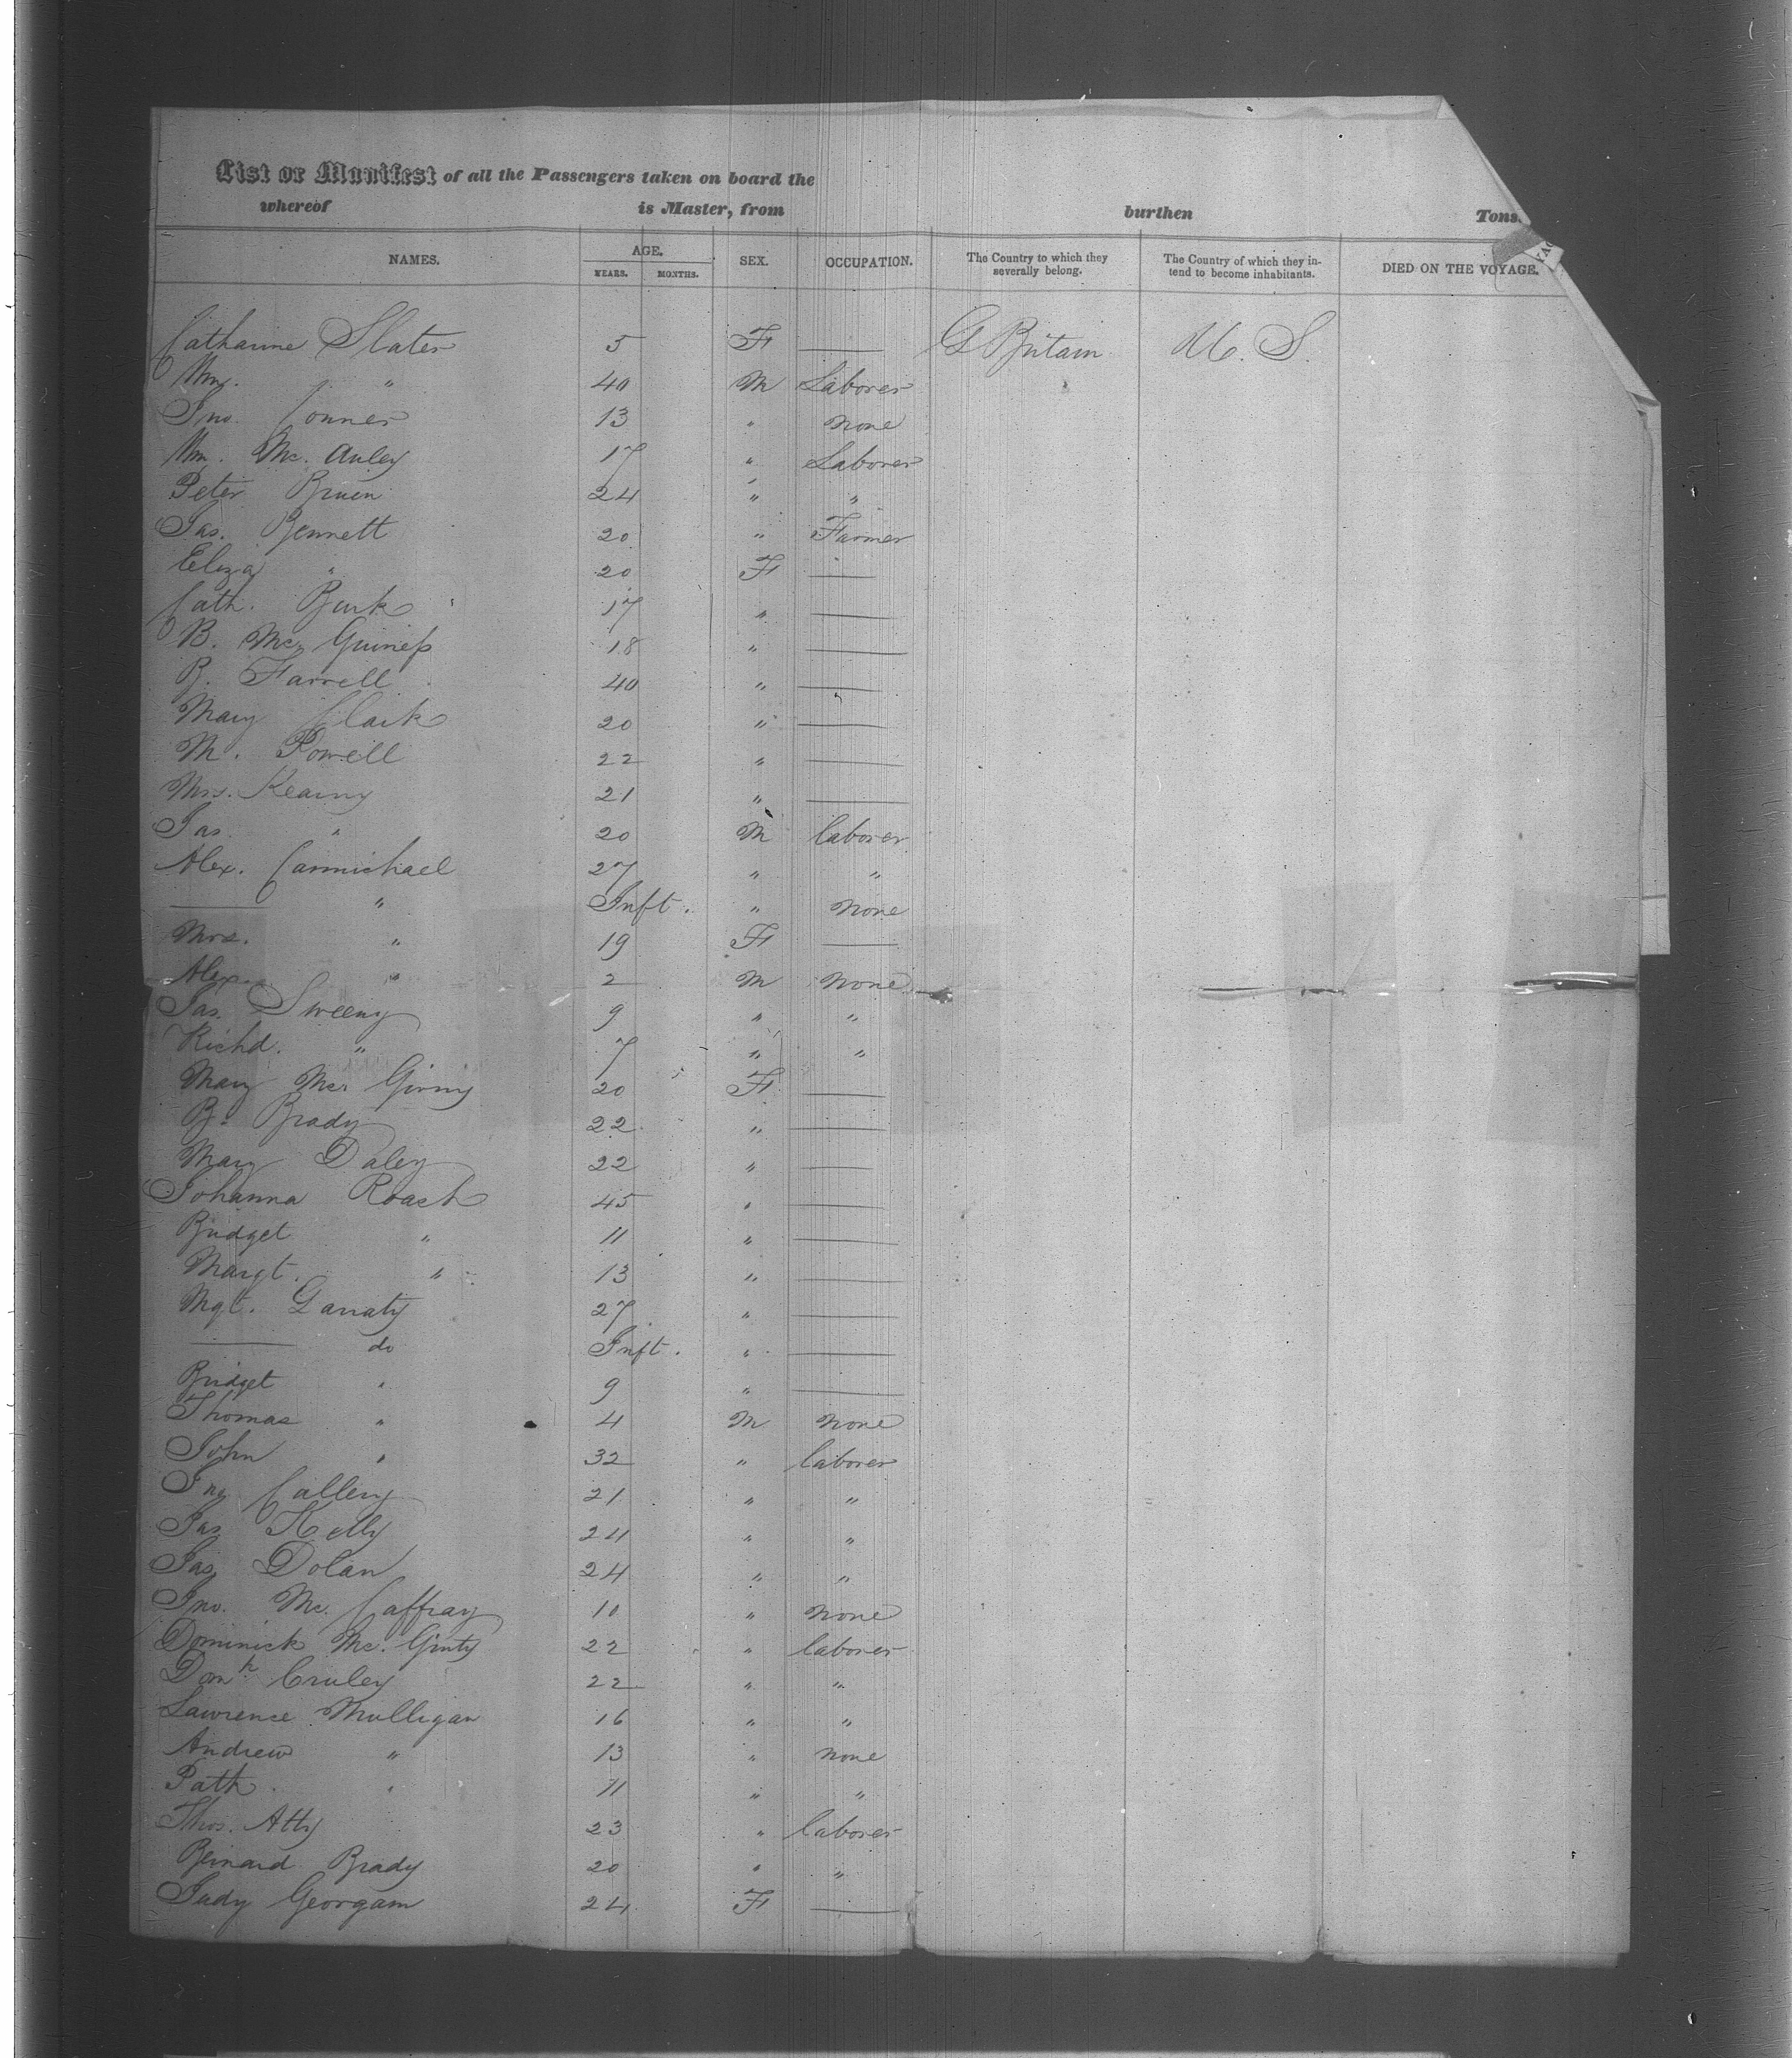 List or Manifest of all the Passengers taken on board the
whereof is Master, from burthen Tons.
NAMES. AGE. YEARS. MONTHS. SEX. OCCUPATION. The Country to which they severally belong. The Country of which they intend to become inhabitants. DIED ON THE VOYAGE.
Catharine Slater 5 F — G Britain U. S.
Wm. " 40 M Laborer
Jno. Conner 13 " none
Wm. Mc. Auley 17 " Laborer
Peter Bruen 24 " "
Jas. Bennett 20 " Farmer
Eliza " 20 F —
Cath. Burk 17 " —
B. Mc. Guiness 18 " —
B. Farrell 40 " —
Mary Clark 20 " —
M. Powell 22 " —
Mrs. Kearny 21 " —
Jas. " 20 M laborer
Alex. Carmichael 27 " "
— " Inft. " none
Mrs. " 19 F —
Alex " 2 M none
Jas. Sweeny 9 " "
Richd. " 7 " "
Mary Mc. 20 F —
B. Brady 22 " —
Mary Daley 22 " —
Johanna Roach 45 " —
Bridget " 11 " —
Margt. " 13 " —
Mgt. Garraty 27 " —
— do Inft. " —
Bridget " 9 " —
Thomas " 4 M none
John " 32 " laborer
Jno Callery 21 " "
Jas Kelly 24 " "
Jas. Dolan 24 " "
Jno. Mc. Caffray 10 " none
Dominick Mc. Ginty 22 " laborer
Domk Cruley 22 " "
Lawrence Mulligan 16 " "
Andrew " 13 " none
Patk. " 11 " "
Thos. Atty 23 " laborer
Bernard Brady 20 " "
Judy Georgam 24 F —